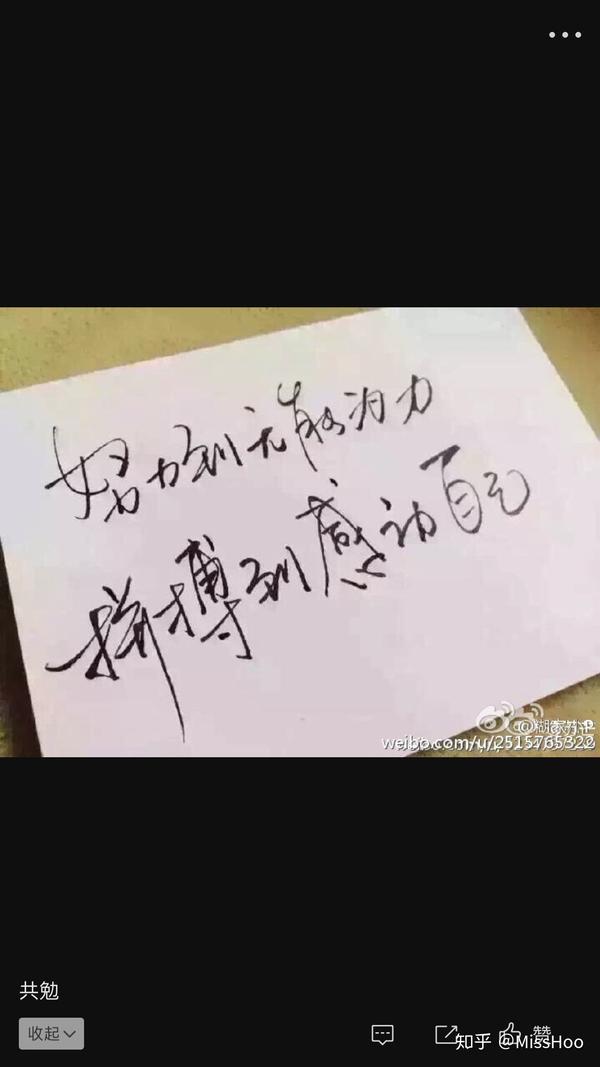 努力到无能为力
拼搏到感动自己
weibo.com/u/2515765322
共勉
收起
赞
知乎 @MissHoo